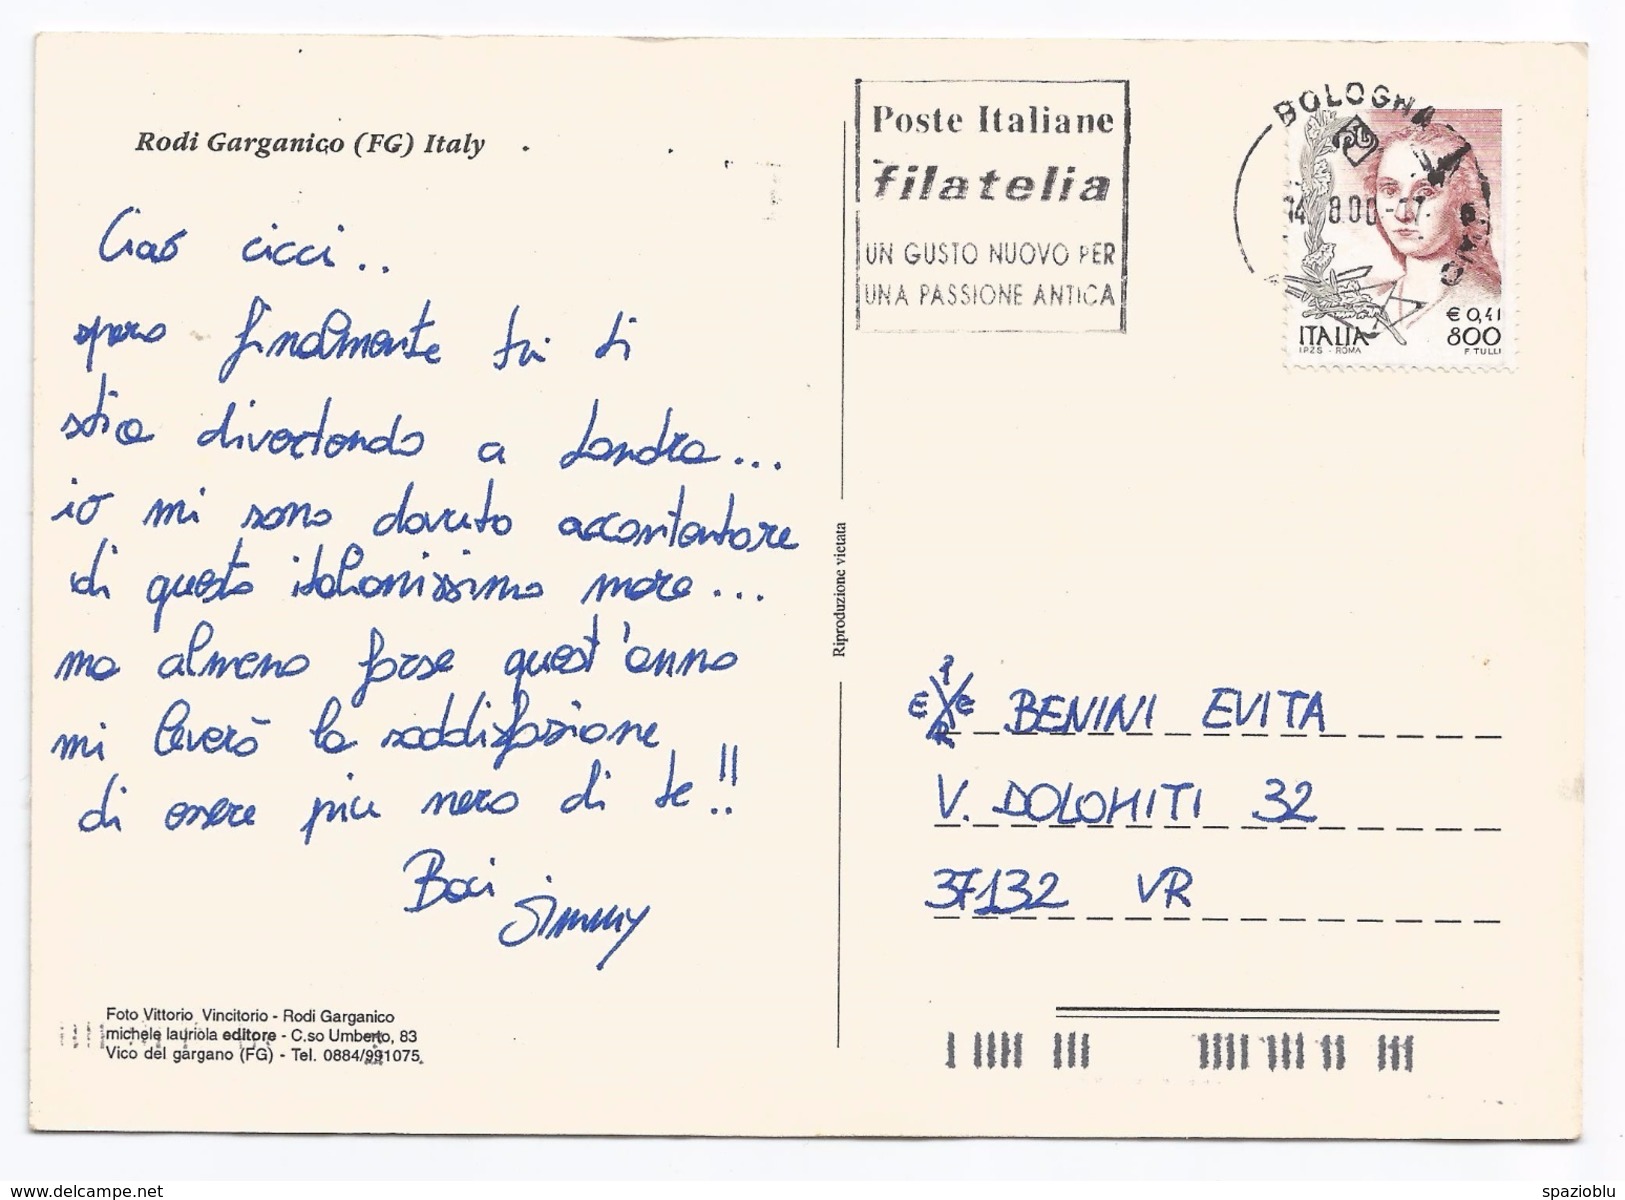 Rodi Garganico (FG) Italy
Ciao cicci..
spero finalmente tu ti
stia divertendo a Londra...
io mi sono dovuto accontentare
di questo italianissimo mare...
ma almeno forse quest'anno
mi leverò la soddisfazione
di essere più nero di te!!
Baci
Jimmy
Foto Vittorio Vincitorio - Rodi Garganico
michele lauriola editore - C.so Umberto, 83
Vico del gargano (FG) - Tel. 0884/991075.
Riproduzione vietata
Poste Italiane
filatelia
UN GUSTO NUOVO PER
UNA PASSIONE ANTICA
BOLOGNA
€ 0,41
ITALIA 800
I.P.Z.S. - ROMA F. TULLI
BENINI EVITA
V. DOLOMITI 32
37132 VR
spazioblu
www.delcampe.net